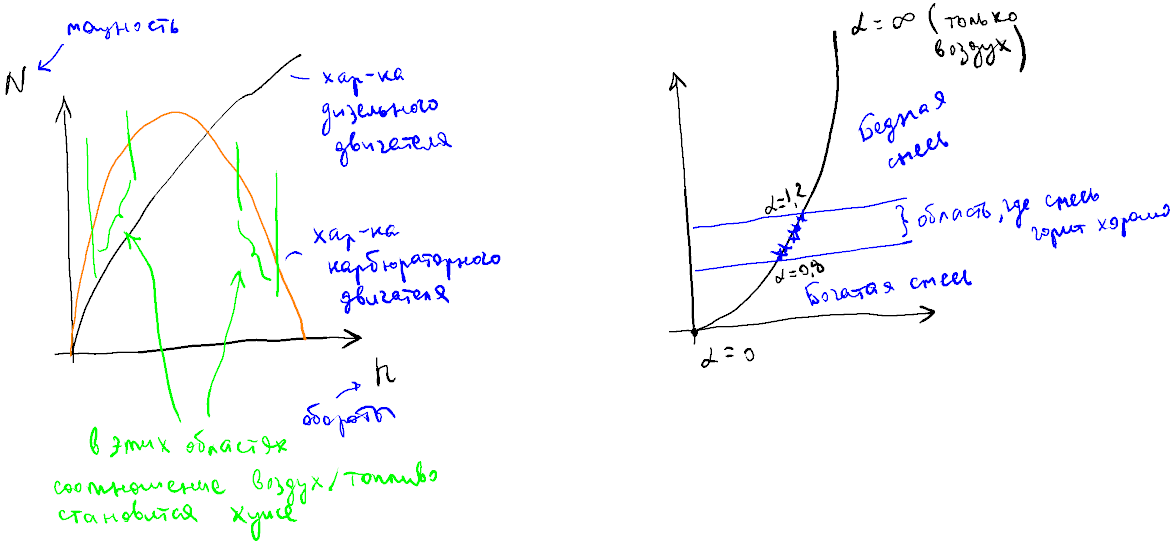 мощность
N
хар-ка
дизельного
двигателя
хар-ка
карбюраторного
двигателя
n
обороты
в этих областях
соотношение воздух/топливо
становится хуже
α = ∞ (только
воздух)
Бедная
смесь
α=1,2
область, где смесь
горит хорошо
α=0,8
Богатая смесь
α = 0